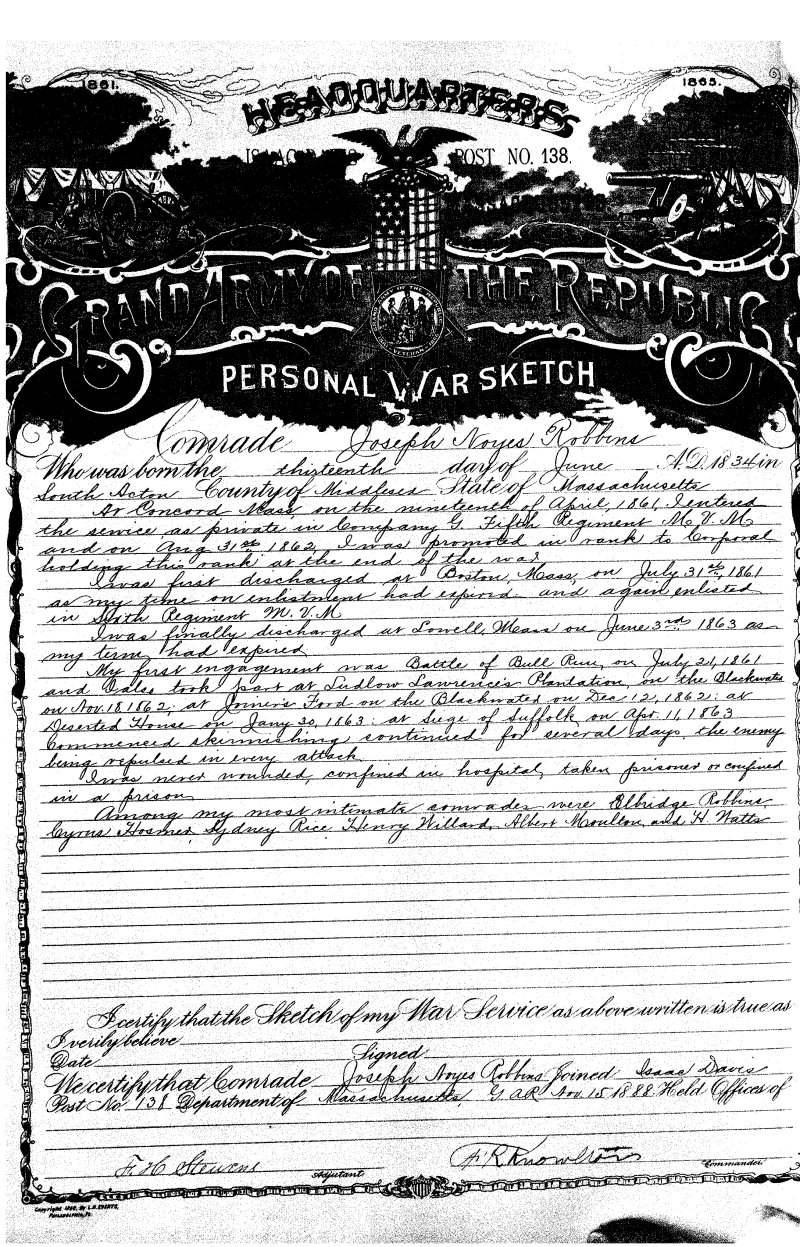 1861.
1865.
HEADQUARTERS
ISAAC DAVIS POST NO. 138.
MASSACHUSETTS
GRAND ARMY OF THE REPUBLIC
PERSONAL WAR SKETCH
Comrade Joseph Noyes Robbins
Who was born the thirteenth day of June A.D. 1834 in
South Acton County of Middlesex State of Massachusetts
At Concord Mass, on the nineteenth of April, 1861, I entered
the service as private in Company G. Fifth Regiment M.V.M
and on Aug 31st 1862, I was promoted in rank to Corporal
holding this rank at the end of the war
I was first discharged at Boston, Mass, on July 31st, 1861
as my time on enlistment had expired and again enlisted
in Sixth Regiment M.V.M
I was finally discharged at Lowell, Mass on June 3rd 1863 as
my term had expired
My first engagement was Battle of Bull Run, on July 21, 1861
and took part at Ludlow Lawrence's Plantation, on the Blackwater
on Nov. 18, 1862, at Joiner's Ford on the Blackwater on Dec. 12, 1862: at
Deserted House on Jany 30, 1863: at Siege of Suffolk, on Apr. 11, 1863
Commenced skirmishing continued for several days, the enemy
being repulsed in every attack
I was never wounded, confined in hospital, taken prisoner or confined
in a prison
Among my most intimate comrades were Elbridge Robbins,
Cyrus Hosmer, Sydney Rice, Henry Willard, Albert Moulton, and H Watts
I certify that the Sketch of my War Service as above written is true as
I verily believe
Date Signed
We certify that Comrade Joseph Noyes Robbins Joined Isaac Davis
Post No. 138 Department of Massachusetts, G.A.R. Nov. 15 1888 Held Offices of
F.H. Stevens Adjutant F R Knowlton Commander.
Copyright 1890, By L.H. EVERTS,
PHILADELPHIA, PA.